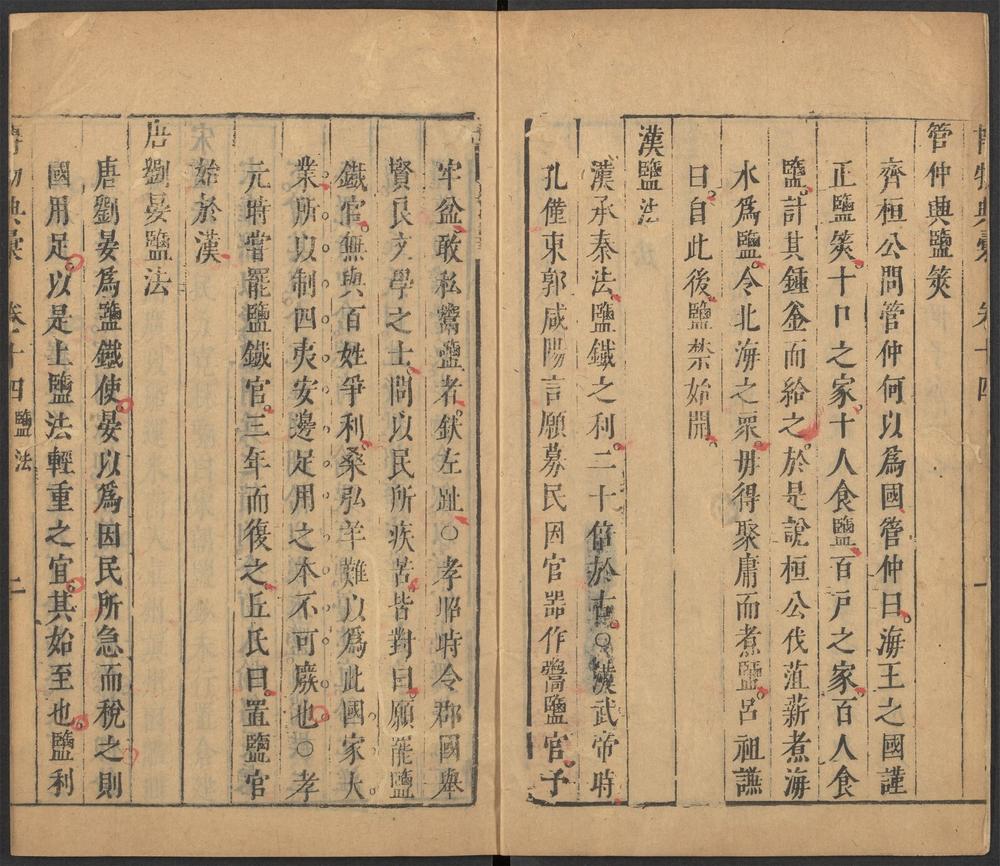 博物典彙 卷十四 一
管仲興鹽筴
齊桓公問管仲何以爲國管仲曰海王之國謹
正鹽筴十口之家十人食鹽百戶之家百人食
鹽計其鍾釜而給之於是說桓公伐菹薪煮海
水爲鹽令北海之眾毋得聚庸而煮鹽呂祖謙
曰自此後鹽禁始開
漢鹽法
漢承秦法鹽鐵之利二十倍於古○漢武帝時
孔僅東郭咸陽言願募民因官器作鬻鹽官予
牢盆敢私鬻鹽者釱左趾○孝昭時令郡國舉
賢良文學之士問以民所疾苦皆對曰願罷鹽
鐵官無與百姓爭利桑弘羊難以爲此國家大
業所以制四夷安邊足用之本不可廢也○孝
元時嘗罷鹽鐵官三年而復之丘氏曰置鹽官
始於漢
唐劉晏鹽法
唐劉晏爲鹽鐵使晏以爲因民所急而稅之則
國用足以是上鹽法輕重之宜其始至也鹽利
博物典彙 卷十四 鹽法 二